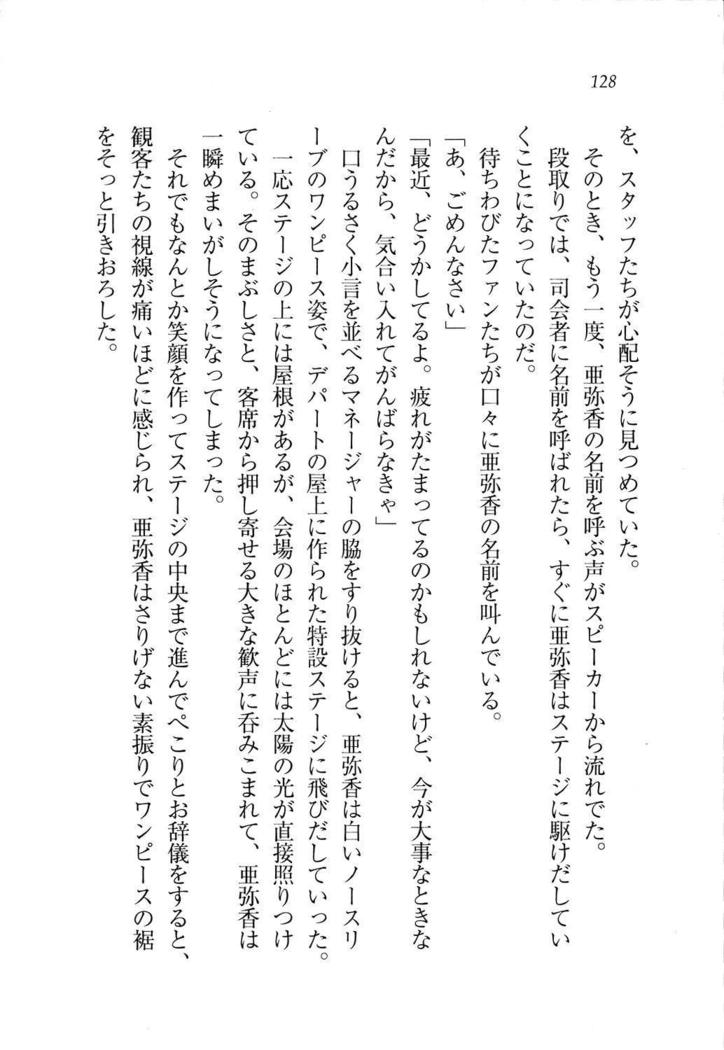 128
を、スタッフたちが心配そうに見つめていた。
そのとき、もう一度、亜弥香の名前を呼ぶ声がスピーカーから流れでた。
段取りでは、司会者に名前を呼ばれたら、すぐに亜弥香はステージに駆けだしてい
くことになっていたのだ。
待ちわびたファンたちが口々に亜弥香の名前を叫んでいる。
「あ、ごめんなさい」
「最近、どうかしてるよ。疲れがたまってるのかもしれないけど、今が大事なときな
んだから、気合い入れてがんばらなきゃ」
口うるさく小言を並べるマネージャーの脇をすり抜けると、亜弥香は白いノースリ
ーブのワンピース姿で、デパートの屋上に作られた特設ステージに飛びだしていった。
一応ステージの上には屋根があるが、会場のほとんどには太陽の光が直接照りつけ
ている。そのまぶしさと、客席から押し寄せる大きな歓声に呑みこまれて、亜弥香は
一瞬めまいがしそうになってしまった。
それでもなんとか笑顔を作ってステージの中央まで進んでぺこりとお辞儀をすると、
観客たちの視線が痛いほどに感じられ、亜弥香はさりげない素振りでワンピースの裾
をそっと引きおろした。